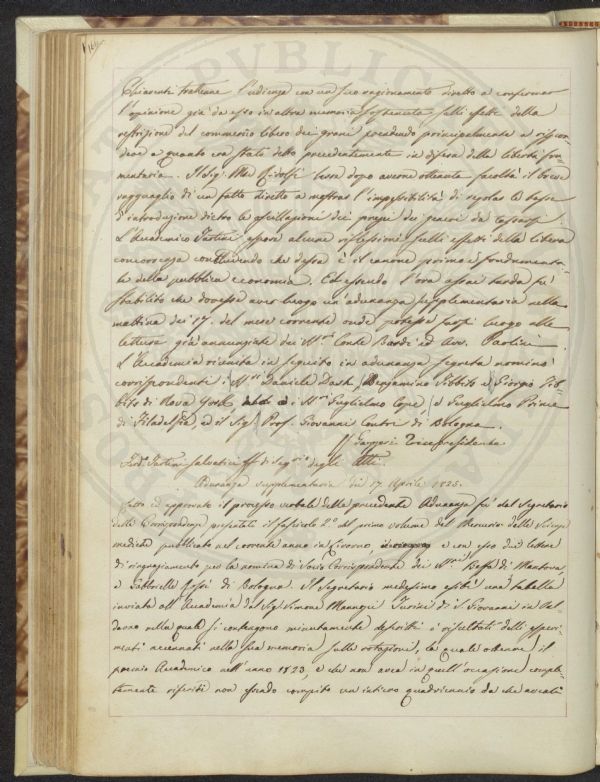 Chiarenti trattenne l'udienza con un suo ragionamento diretto a confermar
l'opinione già da esso in altra memoria sostenuta sulli effetti della
restrizione del commercio libero dei grani prendendo principalmente a rispon-
dere a quanto era stato detto precedentemente in difesa della libertà fru-
mentaria. Il Sig. Mse Ridolfi lesse dopo averne ottenuta facoltà il breve
ragguaglio di un fatto diretto a mostrar l'impossibilità di regolar le basse
d'introduzione dietro le oscillazione dei prezzi dei generi da tassarsi.
L'Accademico Tartini espose alcune riflessioni sulli effetti della libera
concorrenza concludendo che dessa è il canone primo e fondamenta-
le della pubblica economia. Ed essendo l'ora assai tarda fu
stabilito che dovesse aver luogo un'adunanza supplementaria nella
mattina dei 17. del mese corrente onde potesse farsi luogo alle
letture già annunziate dei Sri. Conte Bardi ed Avv. Paolini.
L'Accademia riunita in seguito in adunanza segreta nominò
corrispondenti i Sri Daniele Dash, Bengiamino e Giorgio Tib-
bits di Nova York i Sri Guglielmo Cope, e Guglielmo Prince
di Filadelfia, ed il Sig. Prof. Giovanni Contri di Bologna.
G. Gazzeri Vicepresidente
Ferd. Tartini Salvatici ff di Segrio degli Atti.
Adunanza supplementaria del 17. Aprile 1825.
Letto ed approvato il processo verbale della precedente Adunanza fu dal Segretario
delle Corrispondenze presentato il fascicolo 2.° del primo volume del Mercurio delle Scienze
mediche pubblicato nel corrente anno in Livorno, e con esso due lettere
di ringraziamento per la nomina di Socio Corrispondente dei Sri Beffa di Mantova,
e Fabbrelle Rossi di Bologna. Il Segretario medesimo esibì una tabella
inviata all'Accademia dal Sig. Simone Mannozzi Torini di S. Giovanni in Val-
darno nella quale si contengono minutamente descritti i risultati delli esperi-
menti accennati nella sua memoria sulle rotazioni, la quale ottenne il
premio Accademico nell'anno 1823, e che non avea in quell'occasione comple-
tamente riferiti non essendo compito un intiero quadriennio da che aveali